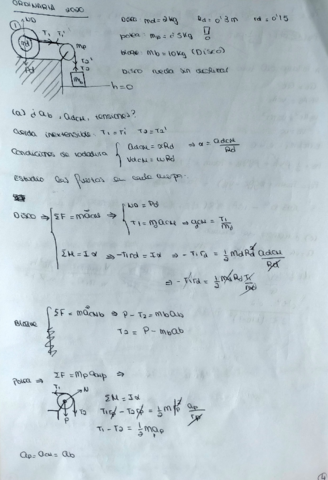 ORDINARIA 2020
DISCO md = 2kg Rd = 0'3m rd = 0'15
polea: mp = 0'5kg
bloque: mb = 10kg (DISCO)
DISCO rueda sin deslizar
h = 0
(a) ¿ab, adCM, tensiones?
Cuerda inextensible: T1 = T1' T2 = T2'
Condiciones de rodadura { adCM = αRd ⇒ α = adCM/Rd
VdCM = ωRd
Estudio las fuerzas en cada cuerpo.
DISCO ⇒ { ΣF = maCM ⇒ { ND = Pd
T1 = mdaCM ⇒ aCM = T1/md
ΣM = Iα ⇒ -T1rd = Iα ⇒ -T1rd = 1/2 MdRd² adCM/Rd
⇒ -T1rd = 1/2 MdRd T1/md
Bloque { ΣF = maCM ⇒ P - T2 = mbab
T2 = P - mbab
Polea ⇒ ΣF = mpacmp ⇒
T1 N
T2
P
ΣM = Iα
T1rp - T2rp = 1/2 mrp² ap/rp
T1 - T2 = 1/2 map
ap = aCM = ab